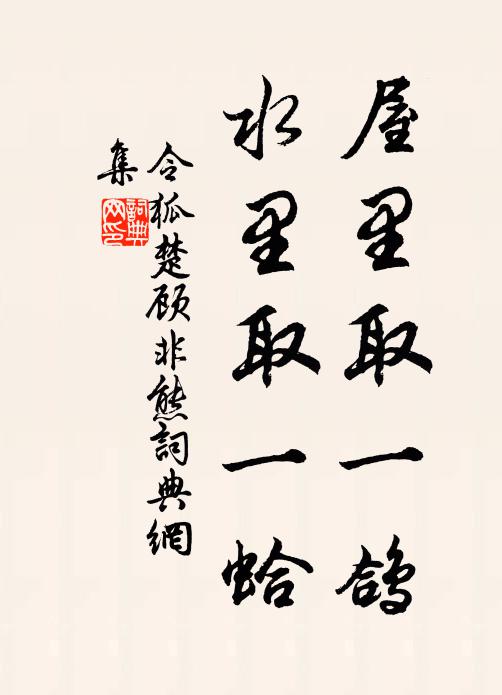 屋里取一鸽
水里取一蛤
令狐楚顾非熊詞典網
集
詞典網印